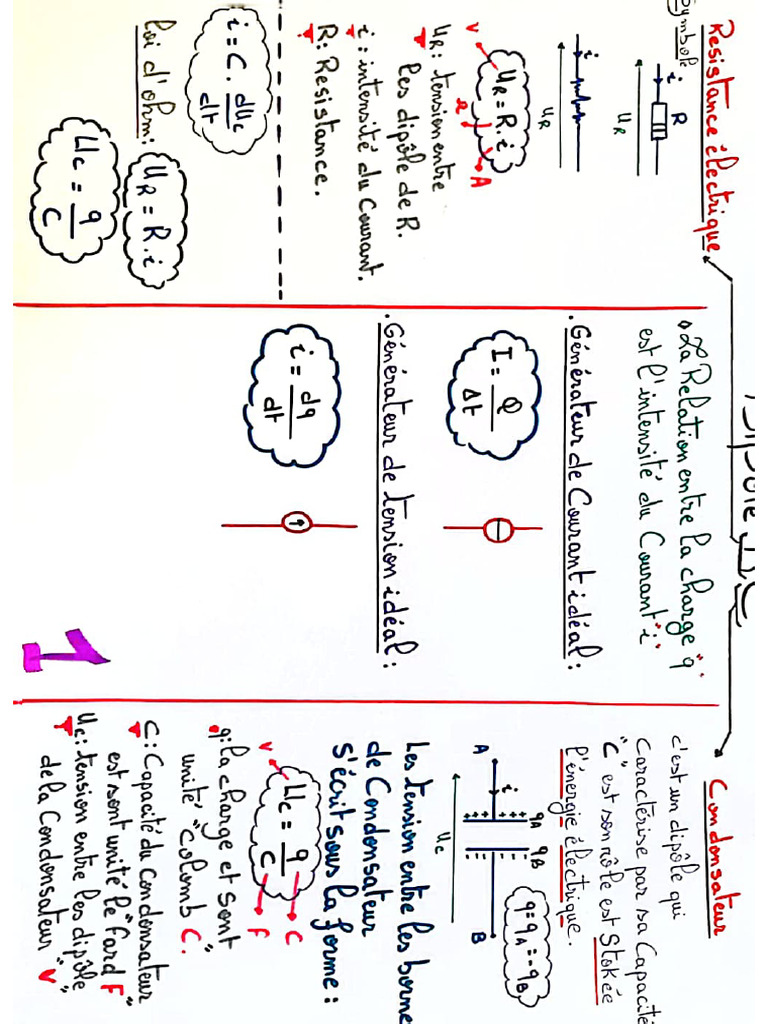 Dipôle RC
Resistance électrique
Symbole
i
R
UR
i
UR
UR = R.i
V
Ω
A
UR: tension entre
les dipôle de R.
i : intensité du Courant.
R: Resistance.
i = C. duc/dt
loi d'ohm: UR = R.i
Uc = q/C
. La Relation entre la charge "q"
est l'intensité du Courant "i"
. Générateur de Courant idéal:
I = Q/Δt
. Générateur de tension idéal:
i = dq/dt
1
Condonsateur
c'est un dipôle qui
Caractésise par sa Capacité
"C" est son rôle est Stokée
l'énergie électrique.
q = qA = -qB
qA
qB
A
i
++
++
B
Uc
Les tension entre les borne
de Condonsateur
s'écrit sous la forme:
Uc = q/C
V
C
F
q: la charge et sont
unité "Colomb C."
C: Capacité du Condonsateur
est sont unité le "Fard F"
Uc: tension entre les dipôle
de la Condonsateur "V"